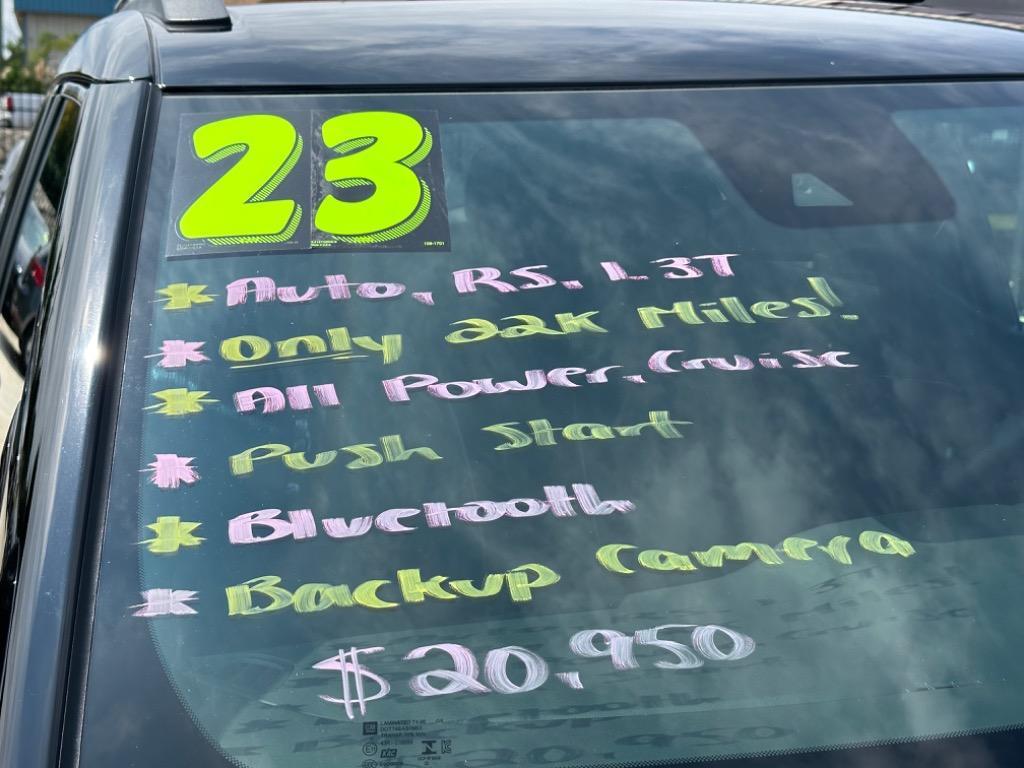 23
* Auto, RS, 1.3T
* Only 22K Miles!
* All Power, Cruise
* Push Start
* Bluetooth
* Backup Camera
$20,950